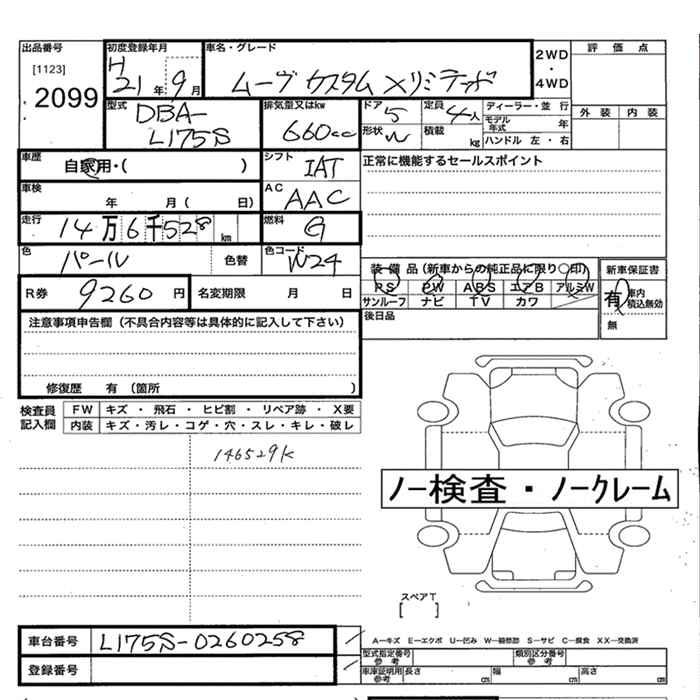 出品番号
[1123]
2099
初度登録年月
H 21年 9月
車名・グレード
ムーヴ カスタム Xリミテッド
2WD
・
4WD
評価点
外装 内装
型式
DBA-
L175S
排気量又はkw
660cc
ドア 5
形状
定員 4人
積載 kg
ディーラー・並行
モデル年式 年
ハンドル 左・右
車歴
自家用・( )
シフト
IAT
正常に機能するセールスポイント
車検
年 月( 日)
AC
AAC
走行
14万6千528km
燃料
G
色
パール
色替
色コード
W24
装備品(新車からの純正品に限り○印)
PS PW ABS エアB アルミW
サンルーフ ナビ TV カワ
新車保証書
有 車内積込無効
無
R券 9260円
名変期限 月 日
後日品
注意事項申告欄(不具合内容等は具体的に記入して下さい)
修復歴 有(箇所 )
検査員記入欄
FW キズ・飛石・ヒビ割・リペア跡・X要
内装 キズ・汚レ・コゲ・穴・スレ・キレ・破レ
146529K
ノー検査・ノークレーム
スペアT
[ ]
車台番号 L175S-0260258
登録番号
A―キズ E―エクボ U―凹み W―補修跡 S―サビ C―腐食 XX―交換済
型式指定番号
参考
類別区分番号
参考
車庫証明用
参考
長さ cm 幅 cm 高さ cm